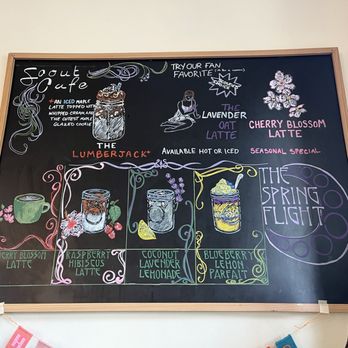 Scout
Cafe
*AN ICED MAPLE
LATTE TOPPED WITH
WHIPPED CREAM AND
THE CUTEST MAPLE
GLAZED COOKIE
THE
LUMBERJACK*
TRY OUR FAN
FAVORITE
THE
LAVENDER
OAT
LATTE
AVAILABLE HOT OR ICED
CHERRY BLOSSOM
LATTE
SEASONAL SPECIAL
CHERRY BLOSSOM
LATTE
RASPBERRY
HIBISCUS
LATTE
COCONUT
LAVENDER
LEMONADE
BLUEBERRY
LEMON
PARFAIT
THE
SPRING
FLIGHT